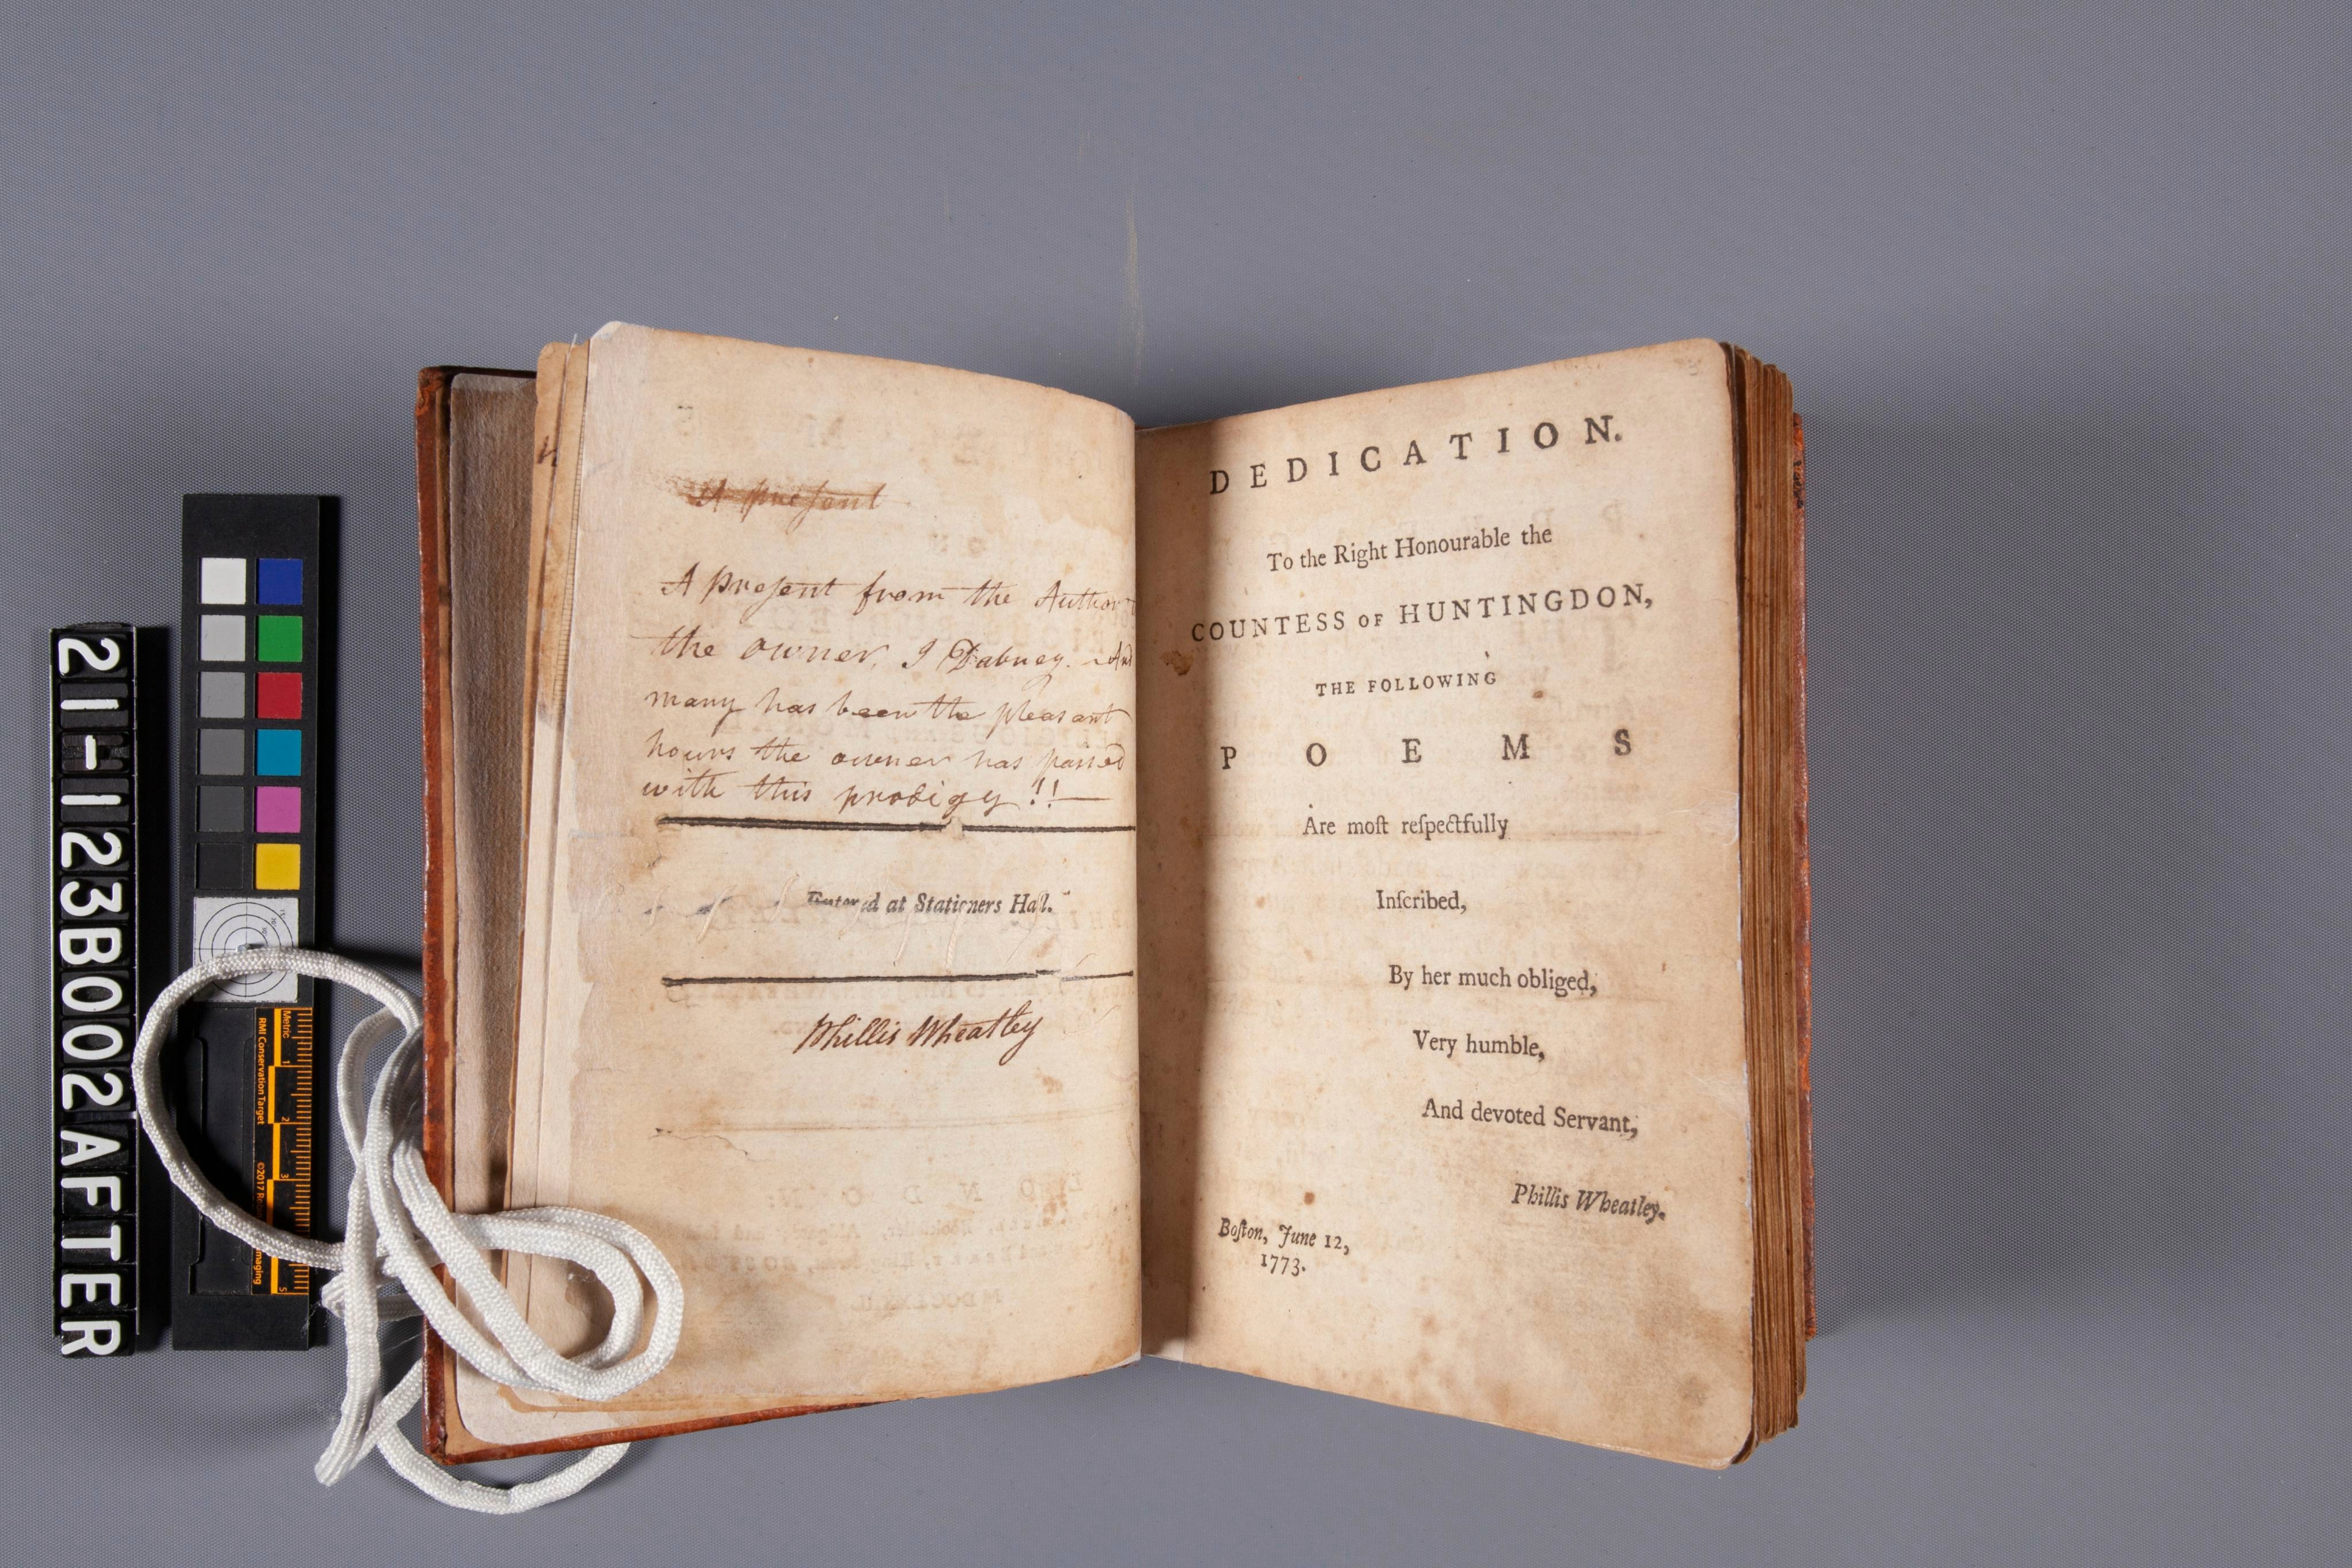 A preſent
A preſent from the Author
the owner, I Dabney. And
many has been the pleasant
hours the owner has passed
with this prodigy !!—
Entered at Stationers Hall.
Phillis Wheatley
DEDICATION.
To the Right Honourable the
COUNTESS OF HUNTINGDON,
THE FOLLOWING
POEMS
Are moſt reſpectfully
Inſcribed,
By her much obliged,
Very humble,
And devoted Servant,
Phillis Wheatley.
Boſton, June 12,
1773.
21-1123B002AFTER
Metric
1
2
3
5
RMI Conservation Target
©2017